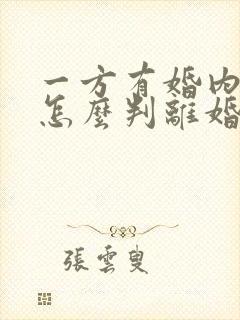 一方有婚内
怎麼判離婚
張雲叟